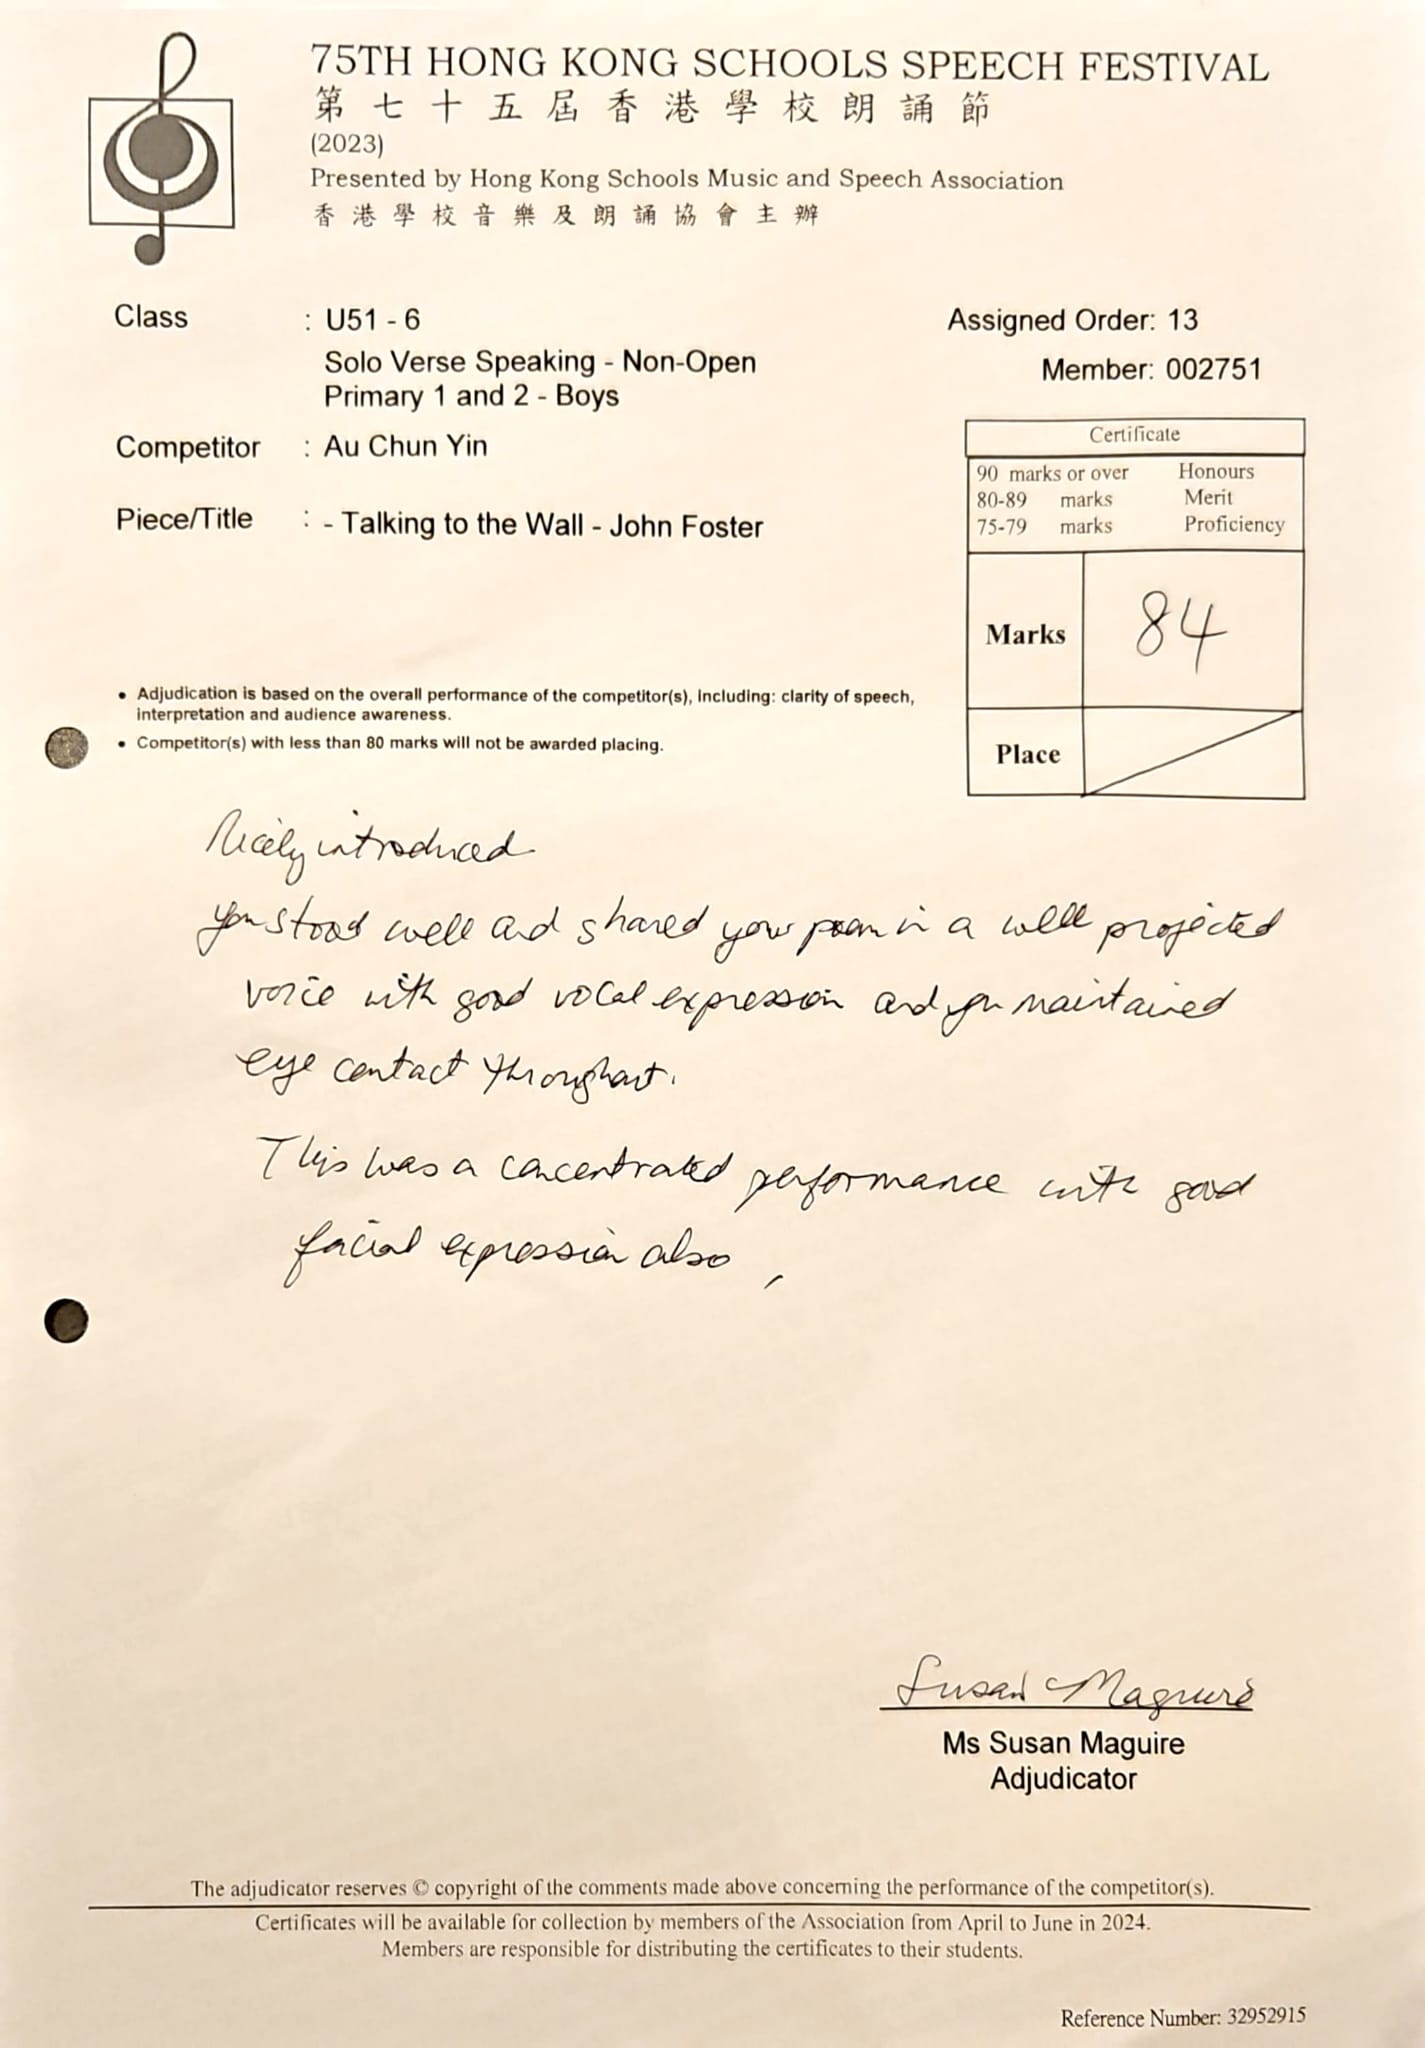 75TH HONG KONG SCHOOLS SPEECH FESTIVAL
第七十五屆香港學校朗誦節
(2023)
Presented by Hong Kong Schools Music and Speech Association
香港學校音樂及朗誦協會主辦
Class : U51 - 6
Solo Verse Speaking - Non-Open
Primary 1 and 2 - Boys
Competitor : Au Chun Yin
Piece/Title : - Talking to the Wall - John Foster
Assigned Order: 13
Member: 002751
Certificate
90 marks or over Honours
80-89 marks Merit
75-79 marks Proficiency
Marks 84
Place
• Adjudication is based on the overall performance of the competitor(s), including: clarity of speech,
interpretation and audience awareness.
• Competitor(s) with less than 80 marks will not be awarded placing.
Nicely introduced
You stood well and shared your poem in a well projected
voice with good vocal expression and you maintained
eye contact throughout.
This was a concentrated performance with good
facial expression also,
Susan Maguire
Ms Susan Maguire
Adjudicator
The adjudicator reserves © copyright of the comments made above concerning the performance of the competitor(s).
Certificates will be available for collection by members of the Association from April to June in 2024.
Members are responsible for distributing the certificates to their students.
Reference Number: 32952915